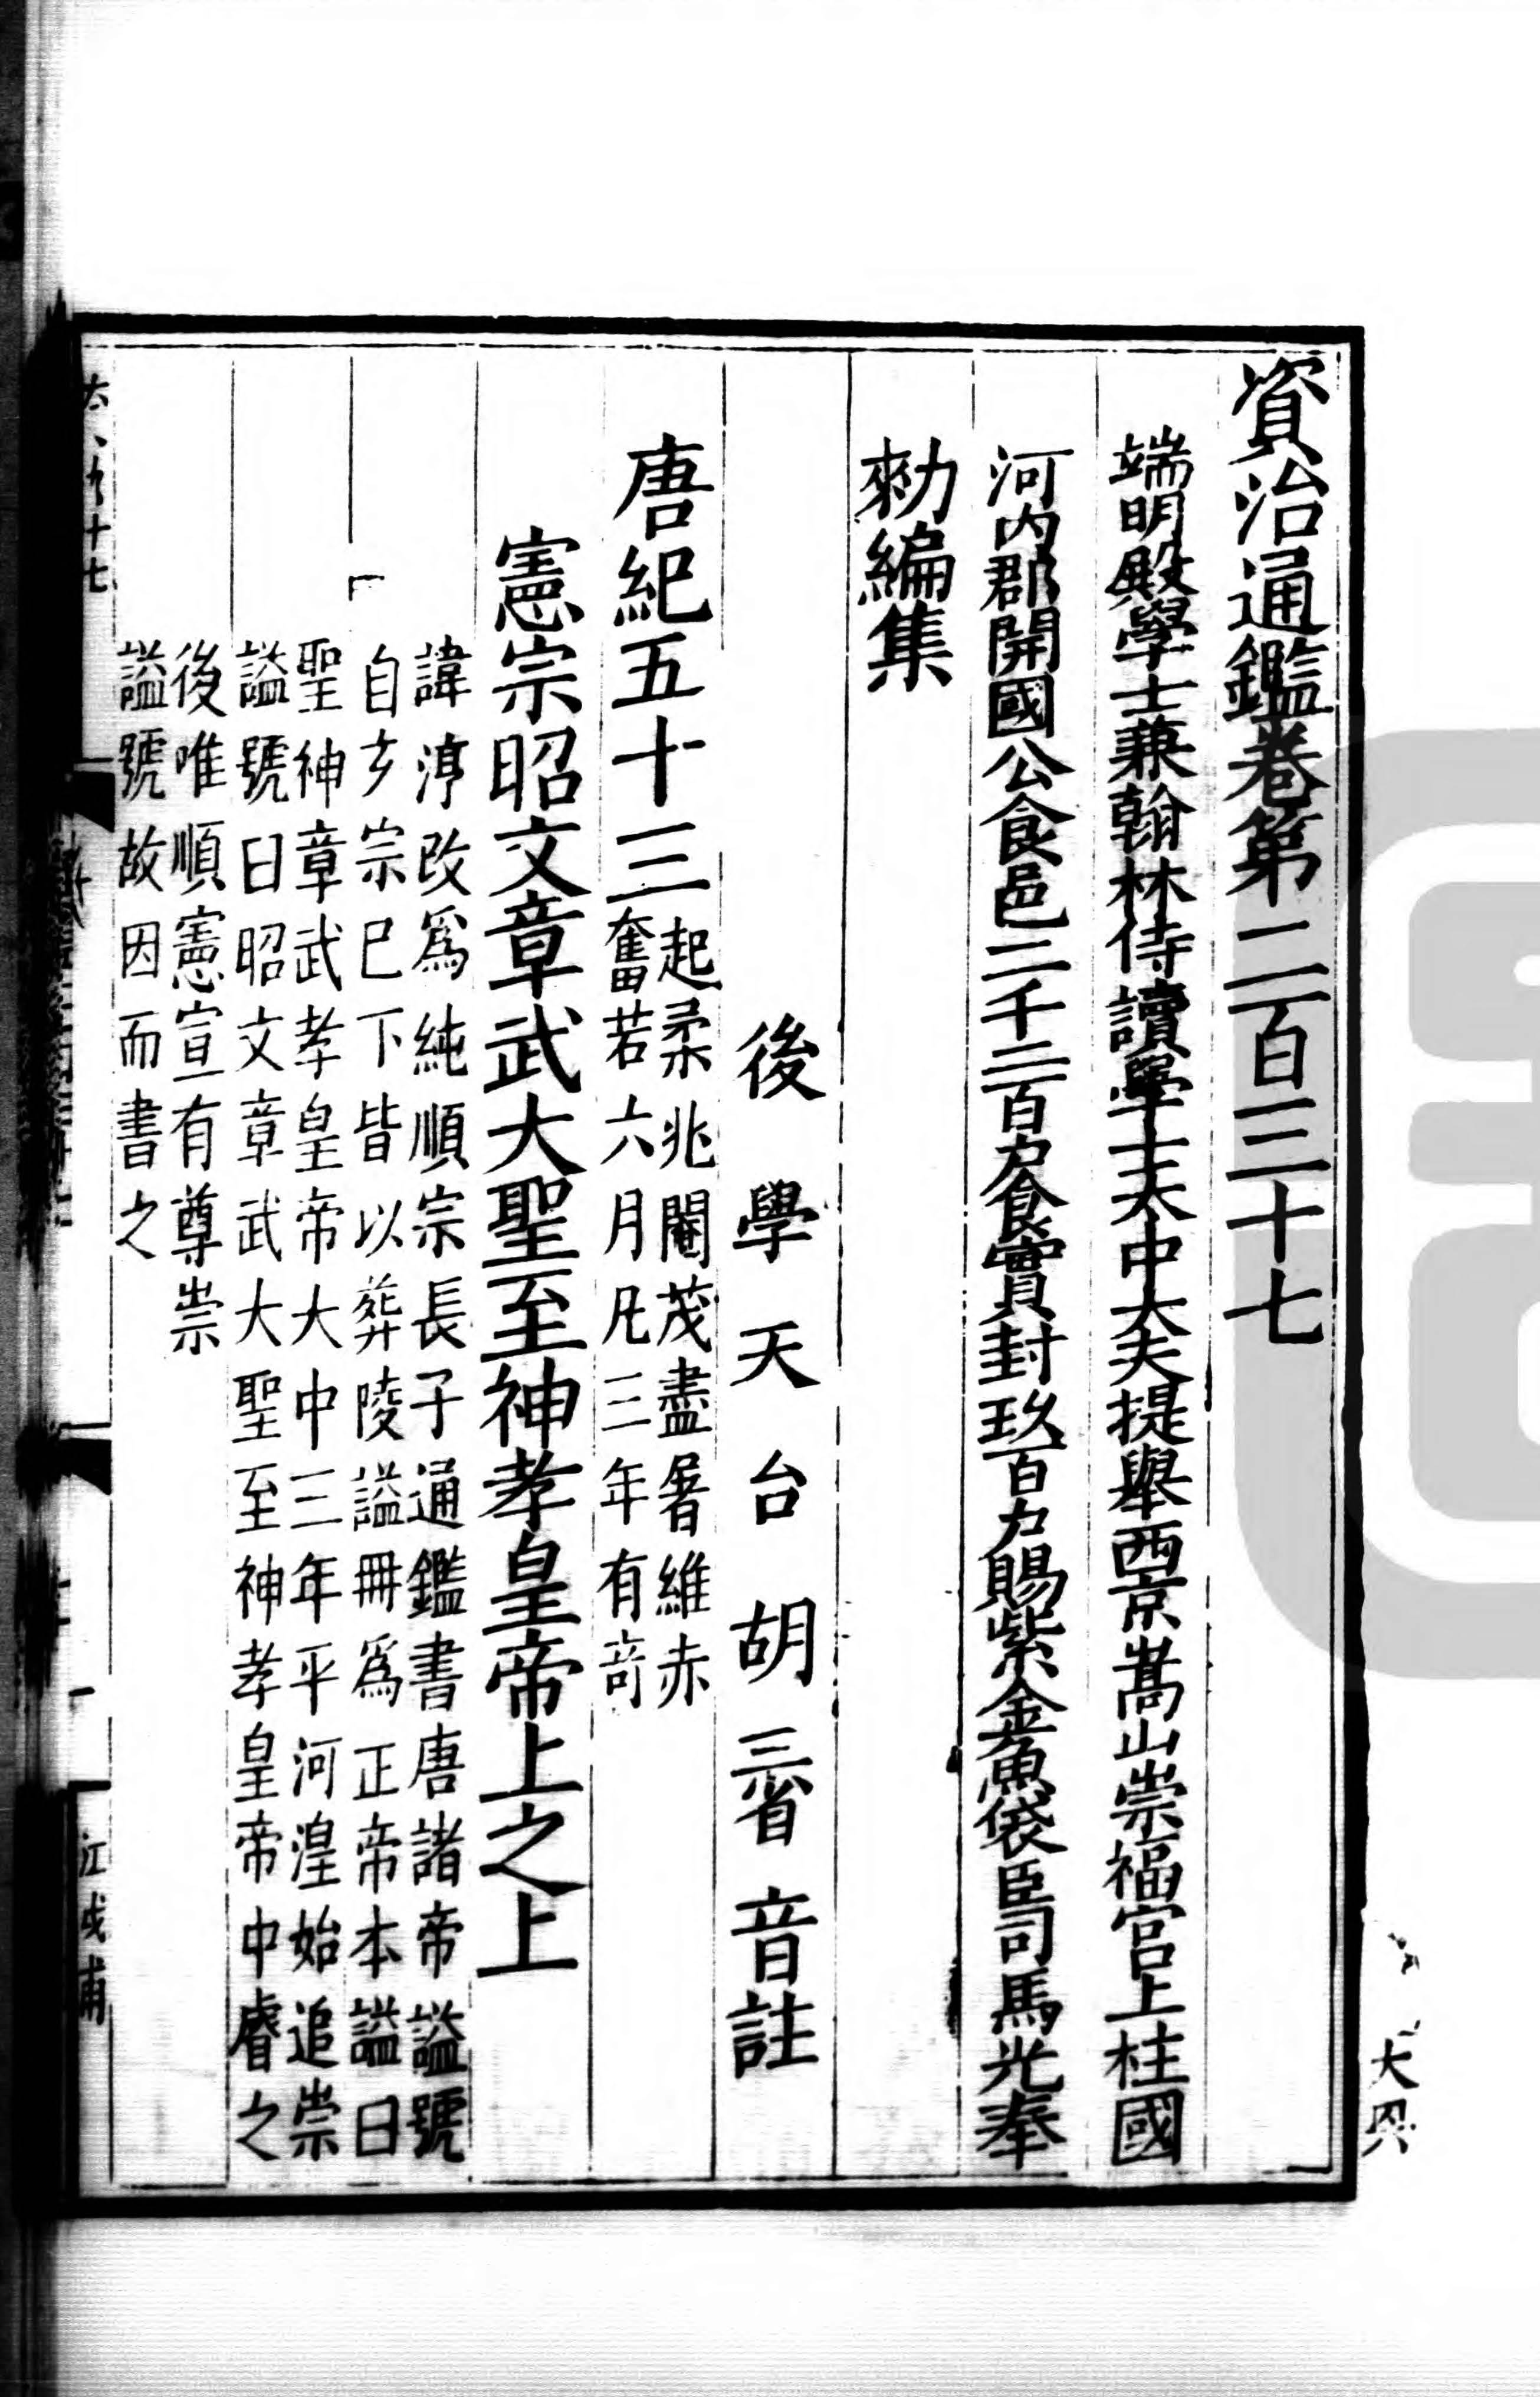 資治通鑑卷第二百三十七
端明殿學士兼翰林侍讀學士太中大夫提舉西京嵩山崇福宮上柱國
河內郡開國公食邑二千二百戶食實封玖百戶賜紫金魚袋臣司馬光奉
勑編集
後學天台胡三省音註
唐紀五十三
起柔兆閹茂盡屠維赤
奮若六月凡三年有奇
憲宗昭文章武大聖至神孝皇帝上之上
諱淳改爲純順宗長子通鑑書唐諸帝謚號
自玄宗已下皆以葬陵謚冊爲正帝本謚曰
聖神章武孝皇帝大中三年平河湟始追崇
謚號曰昭文章武大聖至神孝皇帝中睿之
後唯順憲宣有尊崇
謚號故因而書之